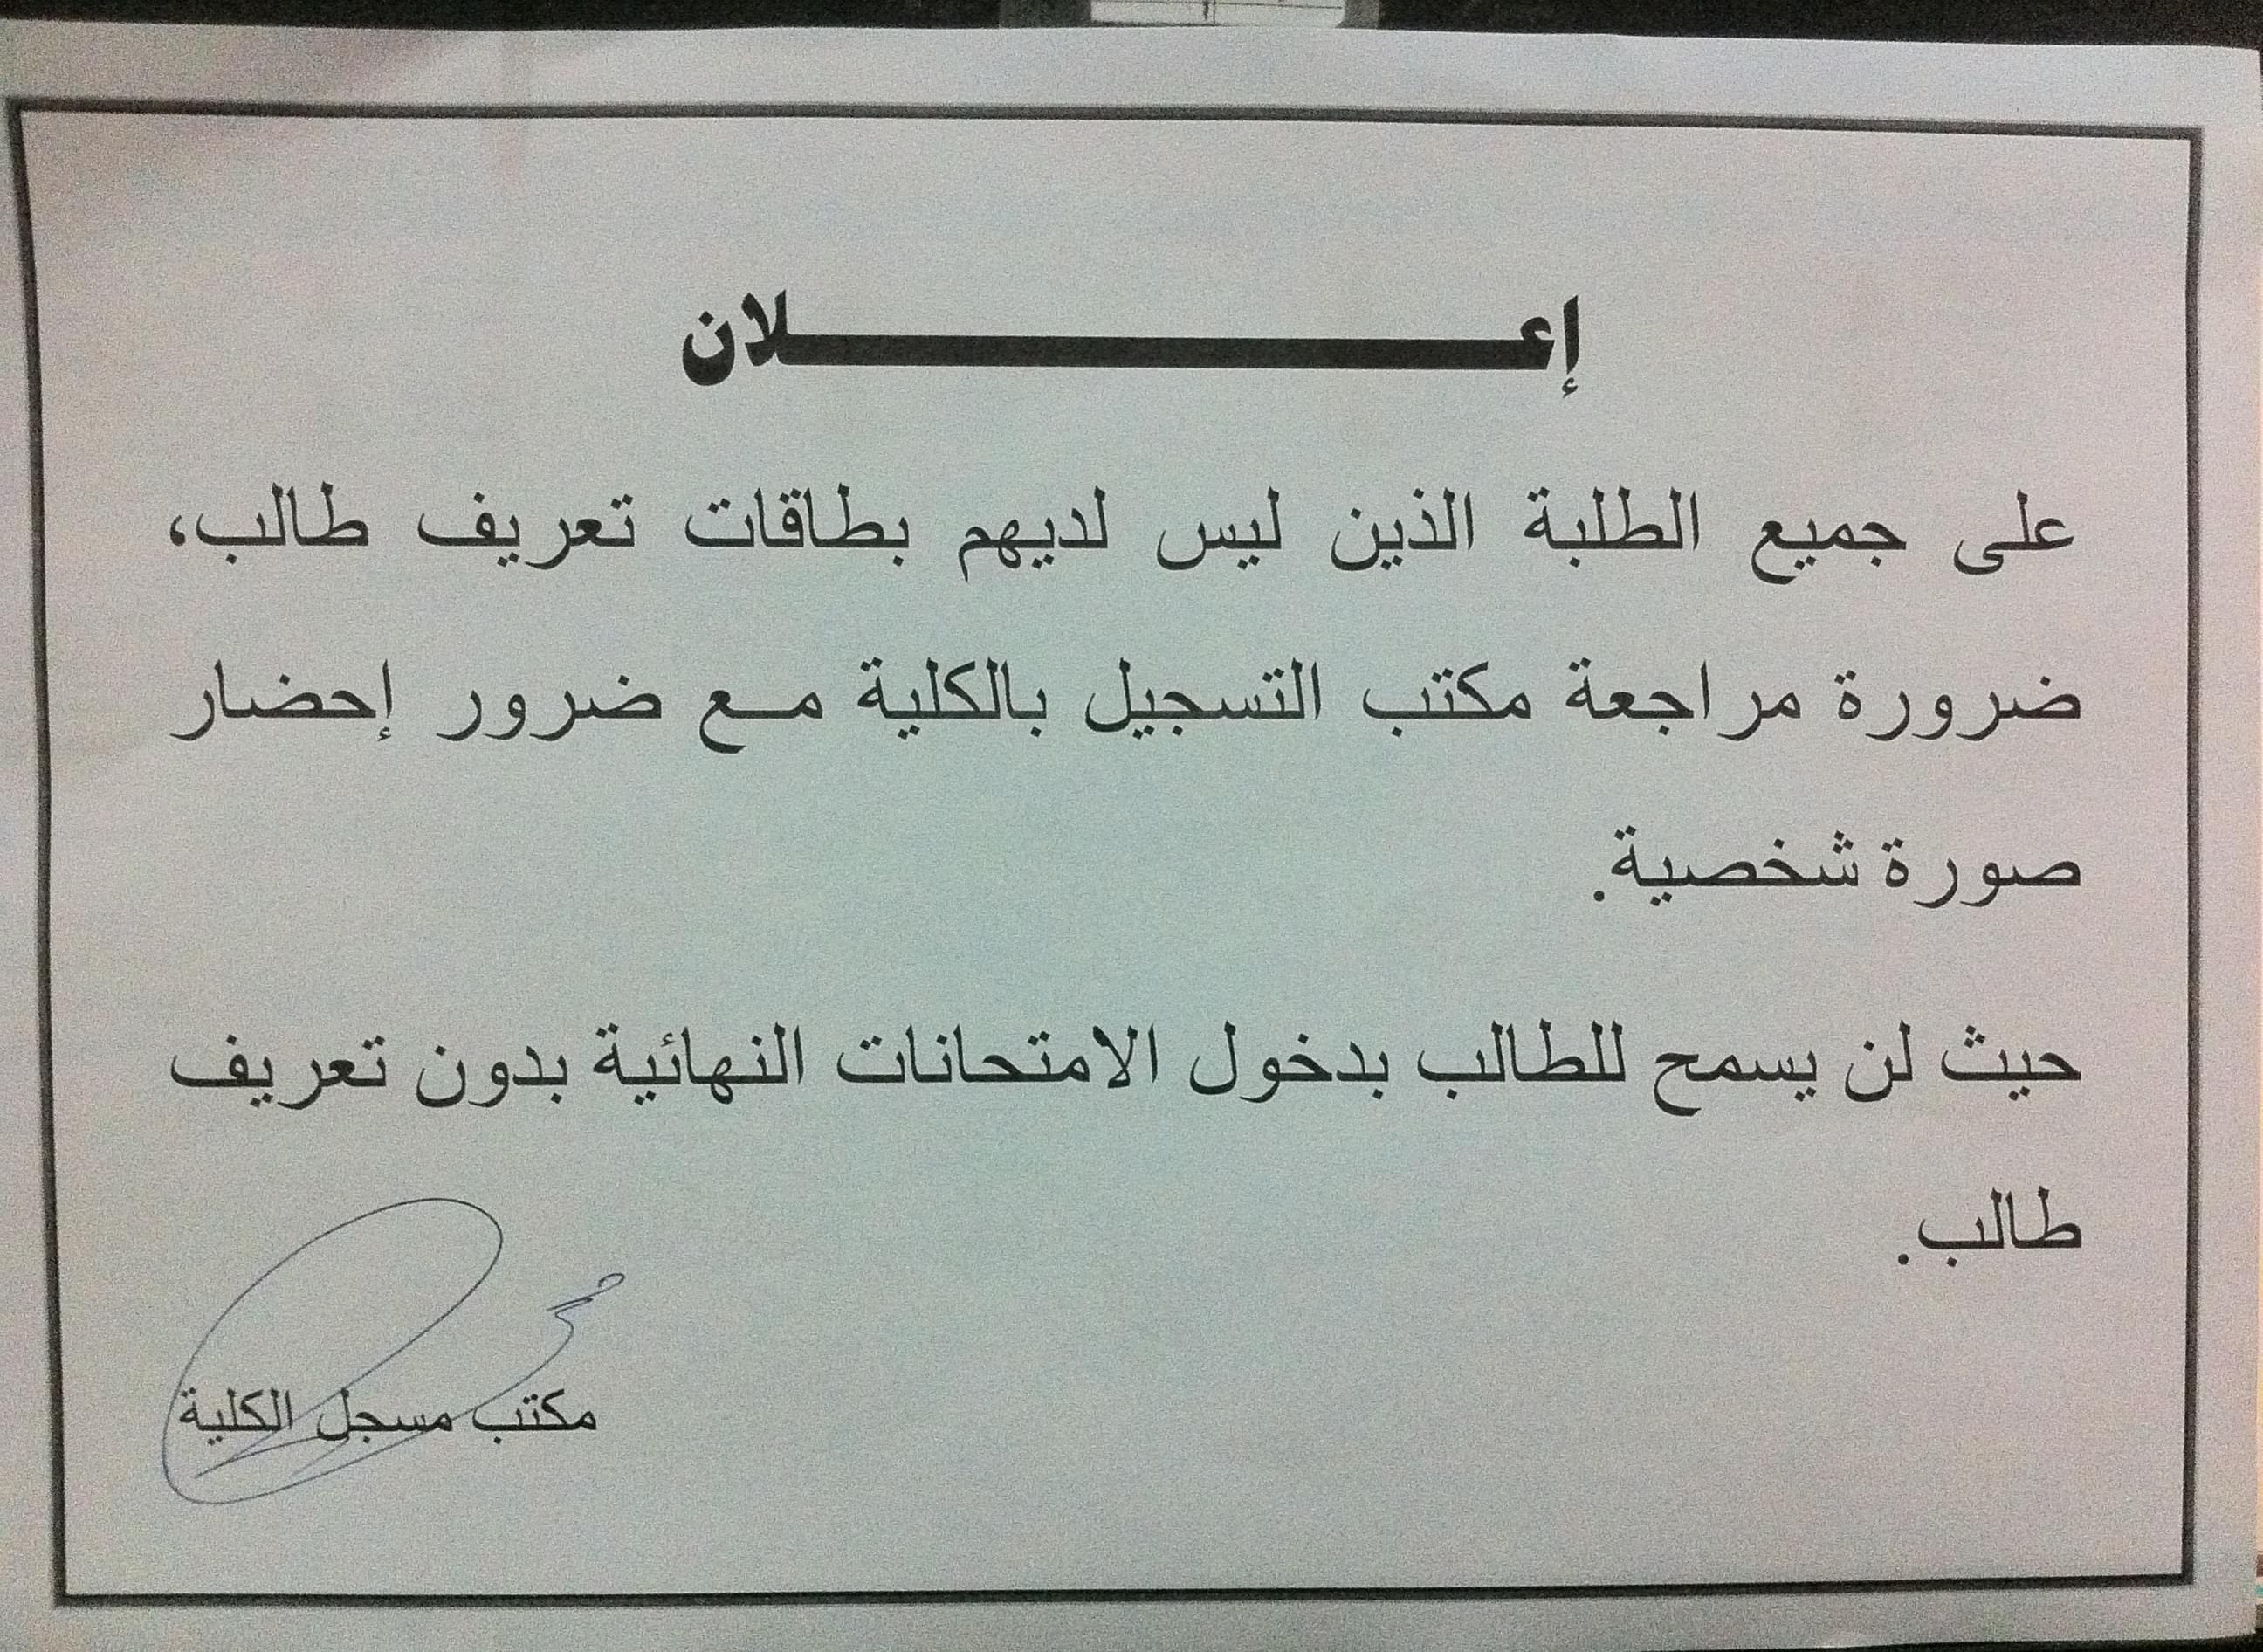 إعـــــــــــــــــــلان
على جميع الطلبة الذين ليس لديهم بطاقات تعريف طالب،
ضرورة مراجعة مكتب التسجيل بالكلية مـع ضرور إحضار
صورة شخصية.
حيث لن يسمح للطالب بدخول الامتحانات النهائية بدون تعريف
طالب.
مكتب مسجل الكلية